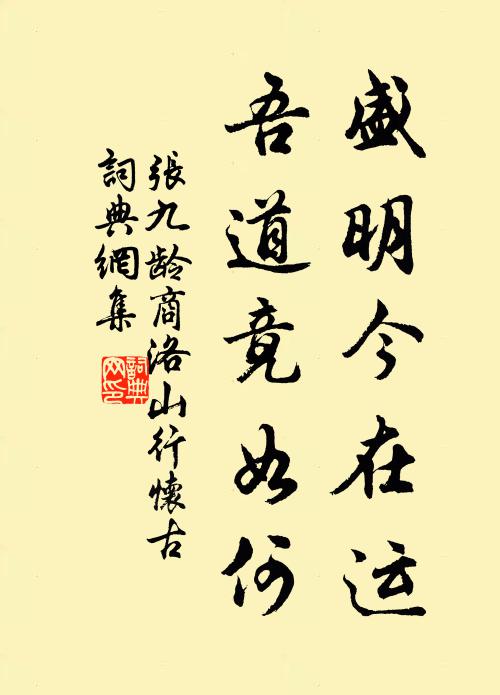 盛明今在运
吾道竟如何
張九龄商洛山行懷古
詞典網集
詞典網印